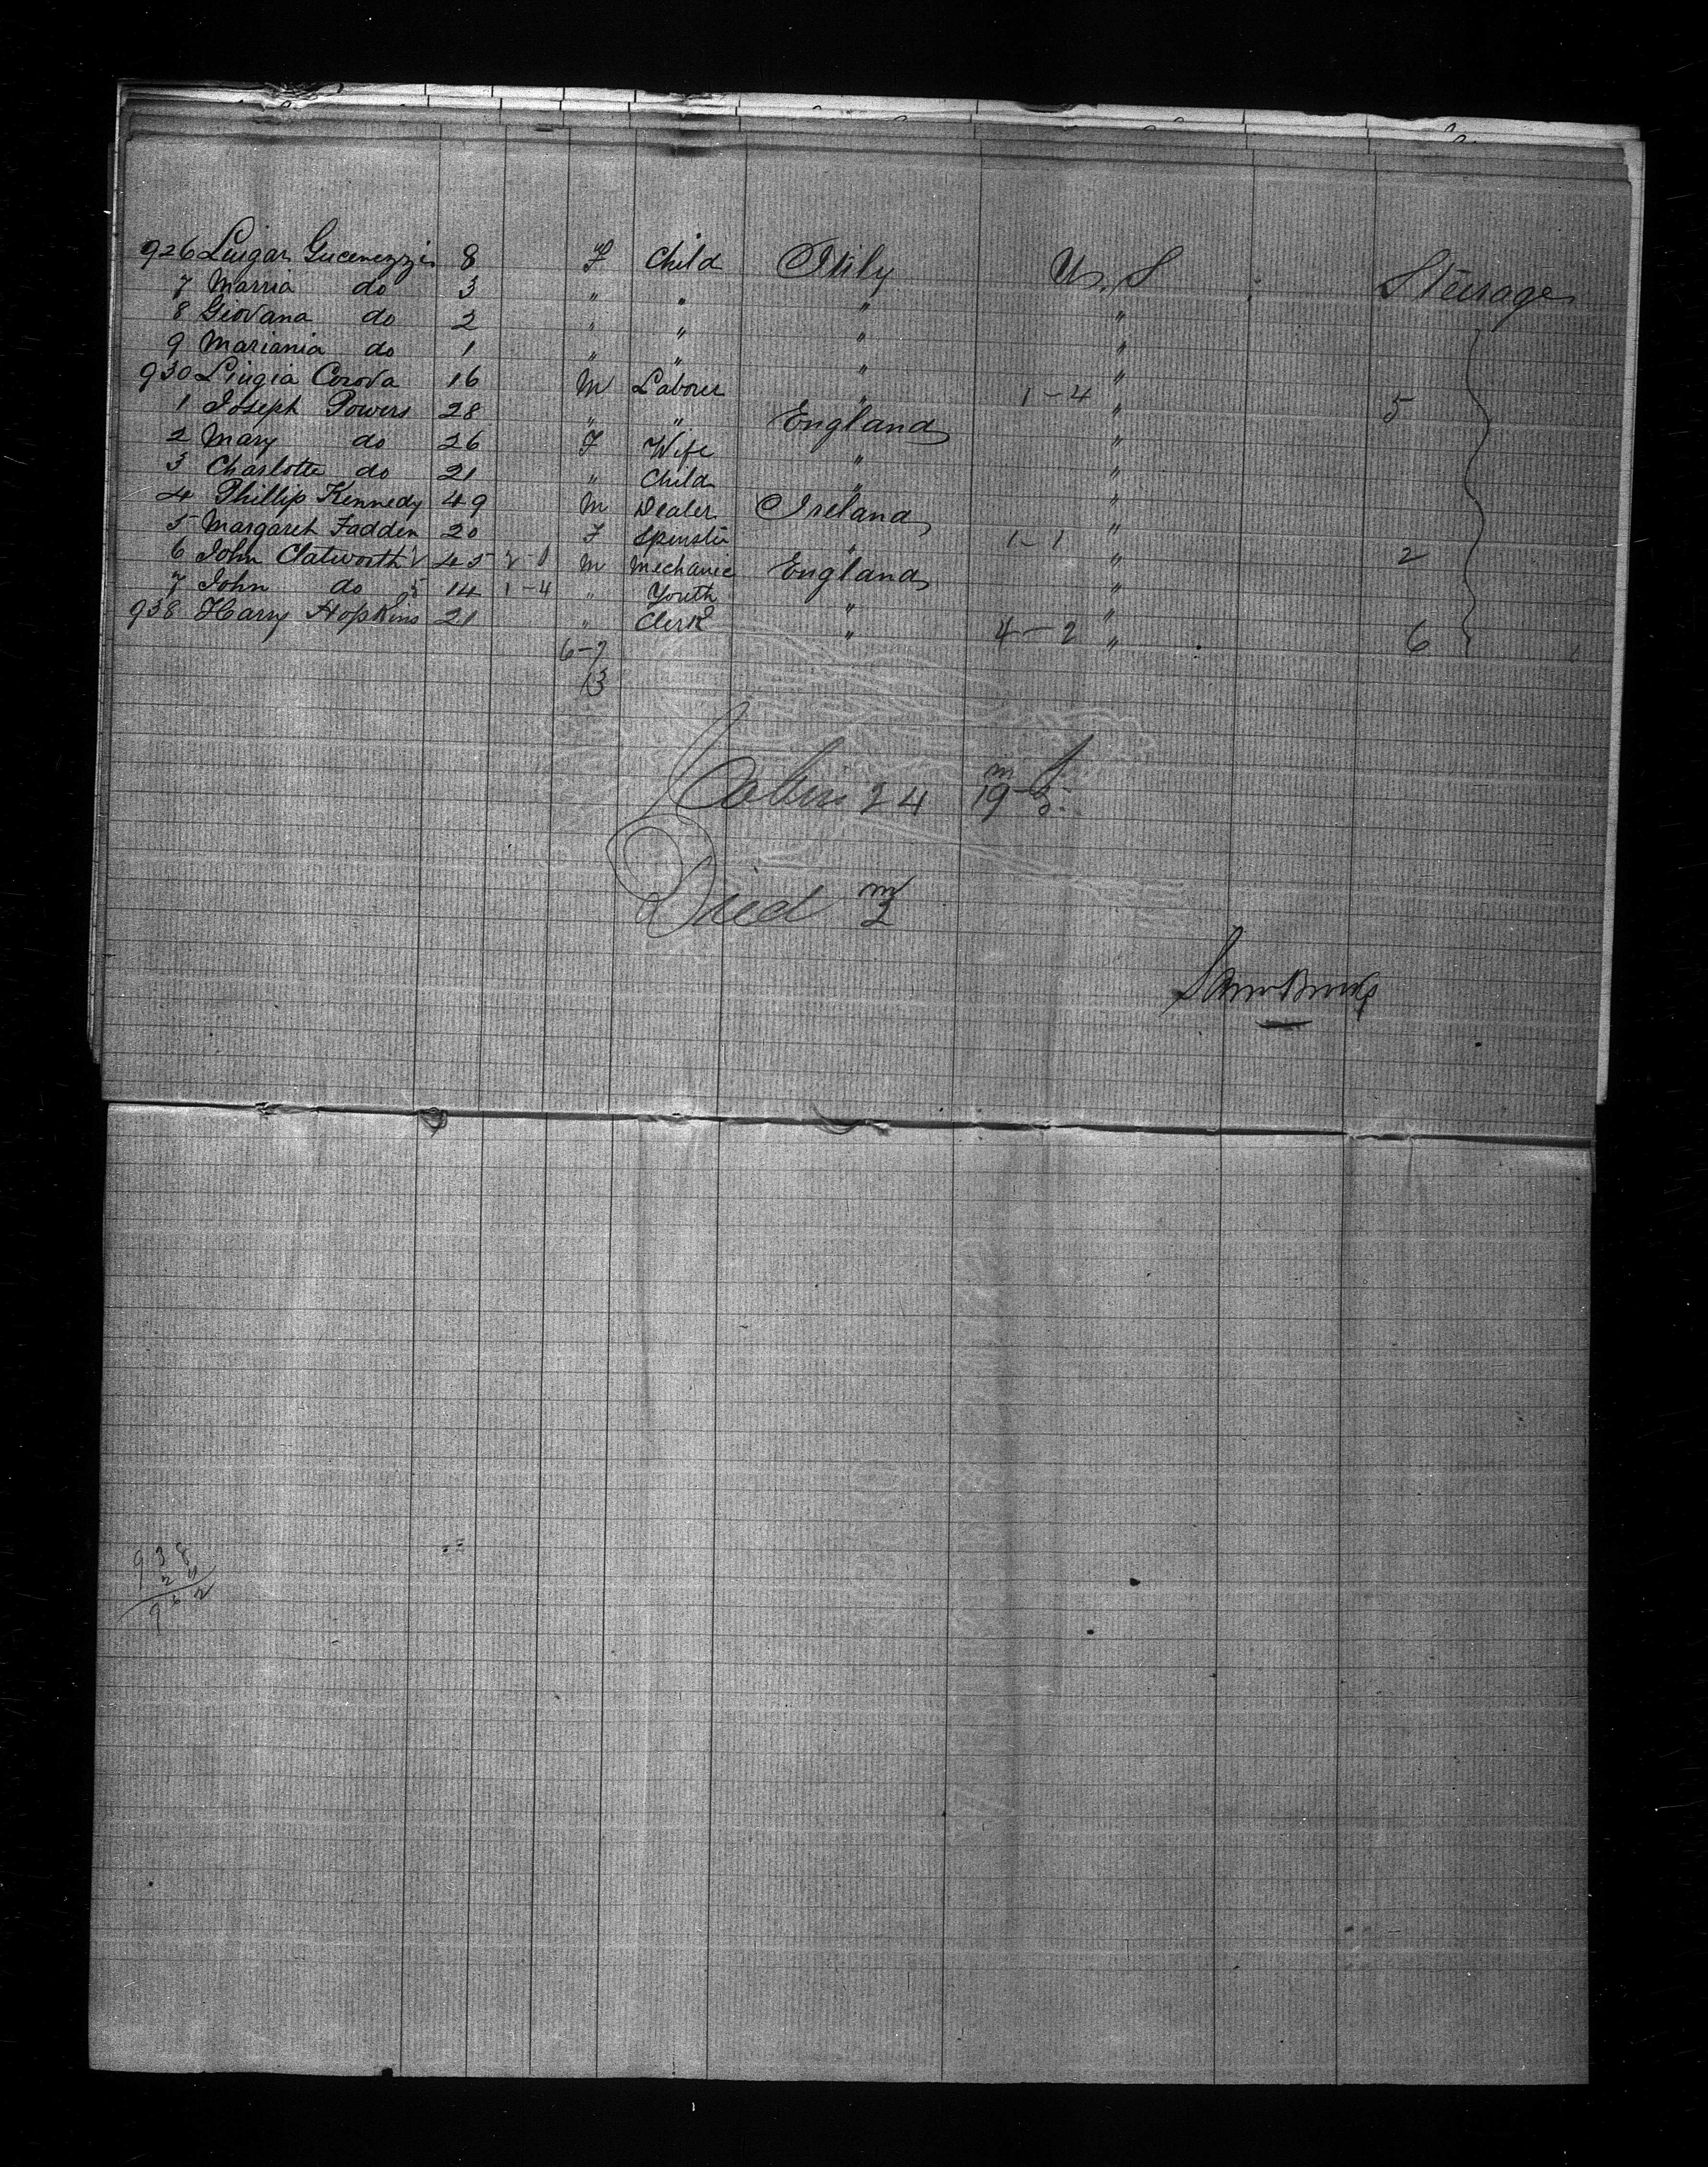 926 Luigar Gucenezzi 8 F Child Itily U.S Steurage
7 Marria do 3 " " " "
8 Giovana do 2 " " " "
9 Mariania do 1 " " " "
930 Liugia Corova 16 M Labourer " 1-4 " 5
1 Joseph Powers 28 " " England "
2 Mary do 26 F Wife " "
3 Charlotte do 21 " Child " "
4 Phillip Kennedy 49 M Dealer Ireland "
5 Margaret Fadden 20 F Spinster " 1-1 " 2
6 John Clatworth 45 M Mechanic England "
7 John do 14 1-4 " Youth " "
938 Harry Hopkins 21 " Clerk " 4-2 " 6
6-7
13
Cabin 24 m 19
Died m 3
938
24
962